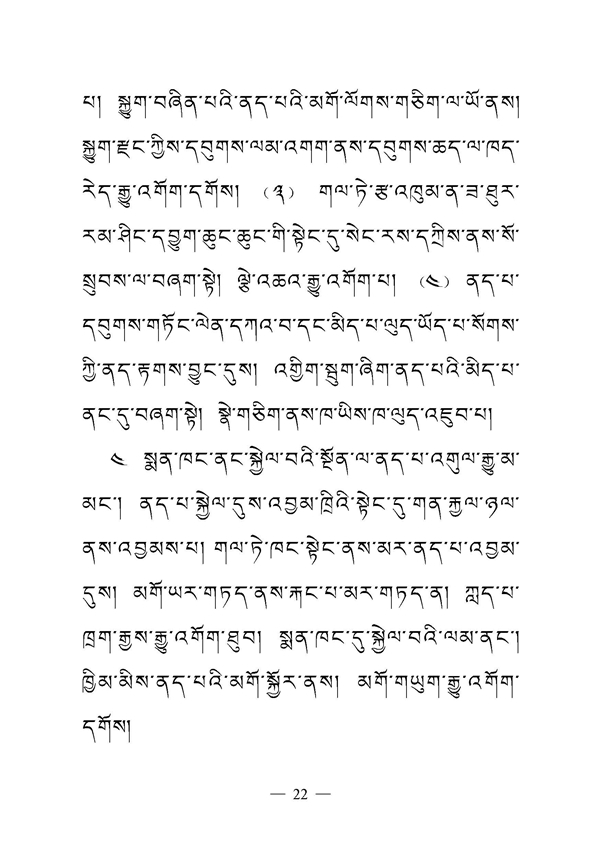 པ། སྐྱུག་བཞིན་པའི་ནད་པའི་མགོ་ལོགས་གཅིག་ལ་ཡོ་ནས།
སྐྱུག་རྫང་ཀྱིས་དབུགས་ལམ་འགག་ནས་དབུགས་ཆད་ལ་ཁད་
རེད་རྒྱུ་འགོག་དགོས། （༣） གལ་ཏེ་རྩ་འཁུམ་ན་ཟ་ཐུར་
རམ་ཤིང་དབྱུག་ཆུང་ཆུང་གི་སྟེང་དུ་སེང་རས་དཀྲིས་ནས་སོ་
སྲུབས་ལ་བཞག་སྟེ། ལྕེ་འཆའ་རྒྱུ་འགོག་པ། （༤） ནད་པ་
དབུགས་གཏོང་ལེན་དཀའ་བ་དང་མིད་པ་ལུད་ཡོད་པ་སོགས་
ཀྱི་ནད་རྟགས་བྱུང་དུས། འགྱིག་སྦུག་ཞིག་ནད་པའི་མིད་པ་
ནང་དུ་བཞག་སྟེ། སྣེ་གཅིག་ནས་ཁ་ཡིས་ཁ་ལུད་འཇུབ་པ།
༤ སྨན་ཁང་ནང་སྐྱེལ་བའི་སྔོན་ལ་ནད་པ་འགུལ་རྒྱུ་མ་
མང་། ནད་པ་སྐྱེལ་དུས་འབྱམ་ཁྲིའི་སྟེང་དུ་གན་རྐྱལ་ཉལ་
ནས་འབྱམས་པ། གལ་ཏེ་ཁང་སྟེང་ནས་མར་ནད་པ་འབྱམ་
དུས། མགོ་ཡར་གཏད་ནས་རྐང་པ་མར་གཏད་ན། ཀླད་པ་
ཁྲག་རྒྱས་རྒྱུ་འགོག་ཐུབ། སྨན་ཁང་དུ་སྐྱེལ་བའི་ལམ་ནང་།
ཁྱིམ་མིས་ནད་པའི་མགོ་སྐྱོར་ནས། མགོ་གཡུག་རྒྱུ་འགོག་
དགོས།
— 22 —